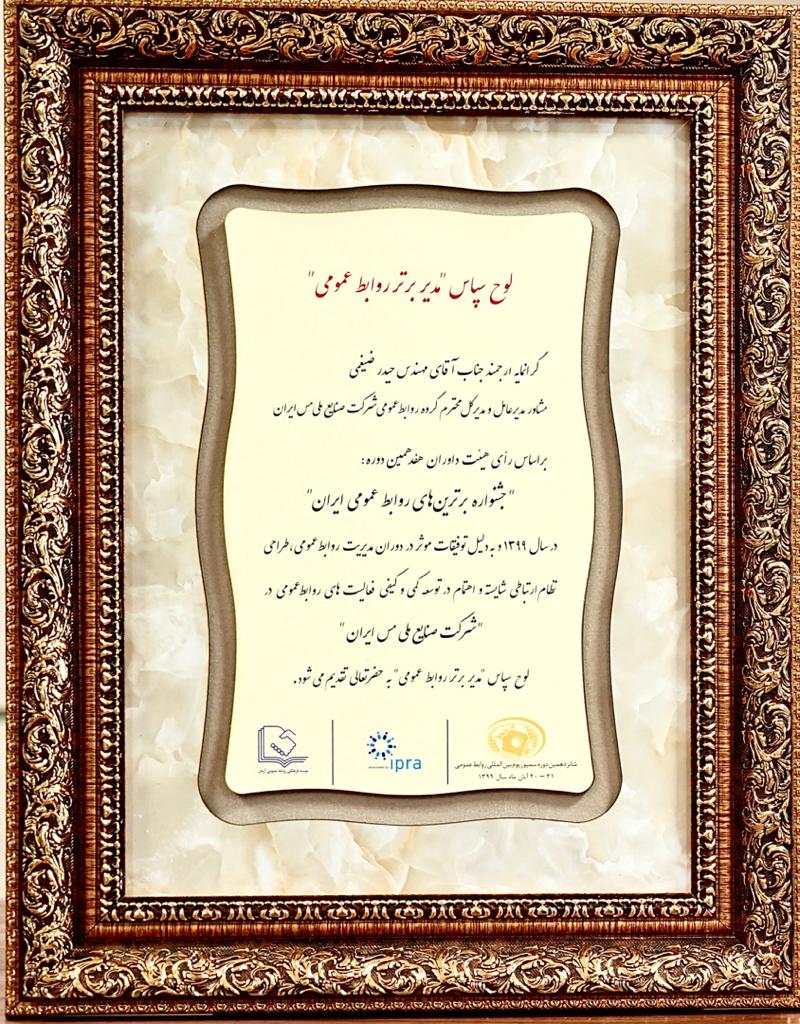 لوح سپاس "مدیر برتر روابط عمومی"
گرانمایه ارجمند جناب آقای مهندس حیدر ضیغمی
مشاور مدیرعامل و مدیرکل محترم گروه روابط عمومی شرکت صنایع ملی مس ایران
براساس رأی هیئت داوران هفدهمین دوره:
"جشنواره برترین‌های روابط عمومی ایران"
در سال ۱۳۹۹ و به دلیل توفیقات موثر در دوران مدیریت روابط عمومی، طراحی
نظام ارتباطی شایسته و اهتمام در توسعه کمی و کیفی فعالیت های روابط عمومی در
"شرکت صنایع ملی مس ایران"
لوح سپاس "مدیر برتر روابط عمومی" به حضرتعالی تقدیم می شود.
شانزدهمین دوره سمپوزیوم بین المللی روابط عمومی
۲۰ – ۲۱ آبان ماه سال ۱۳۹۹
ipra
موسسه فرهنگی روابط عمومی آرمان